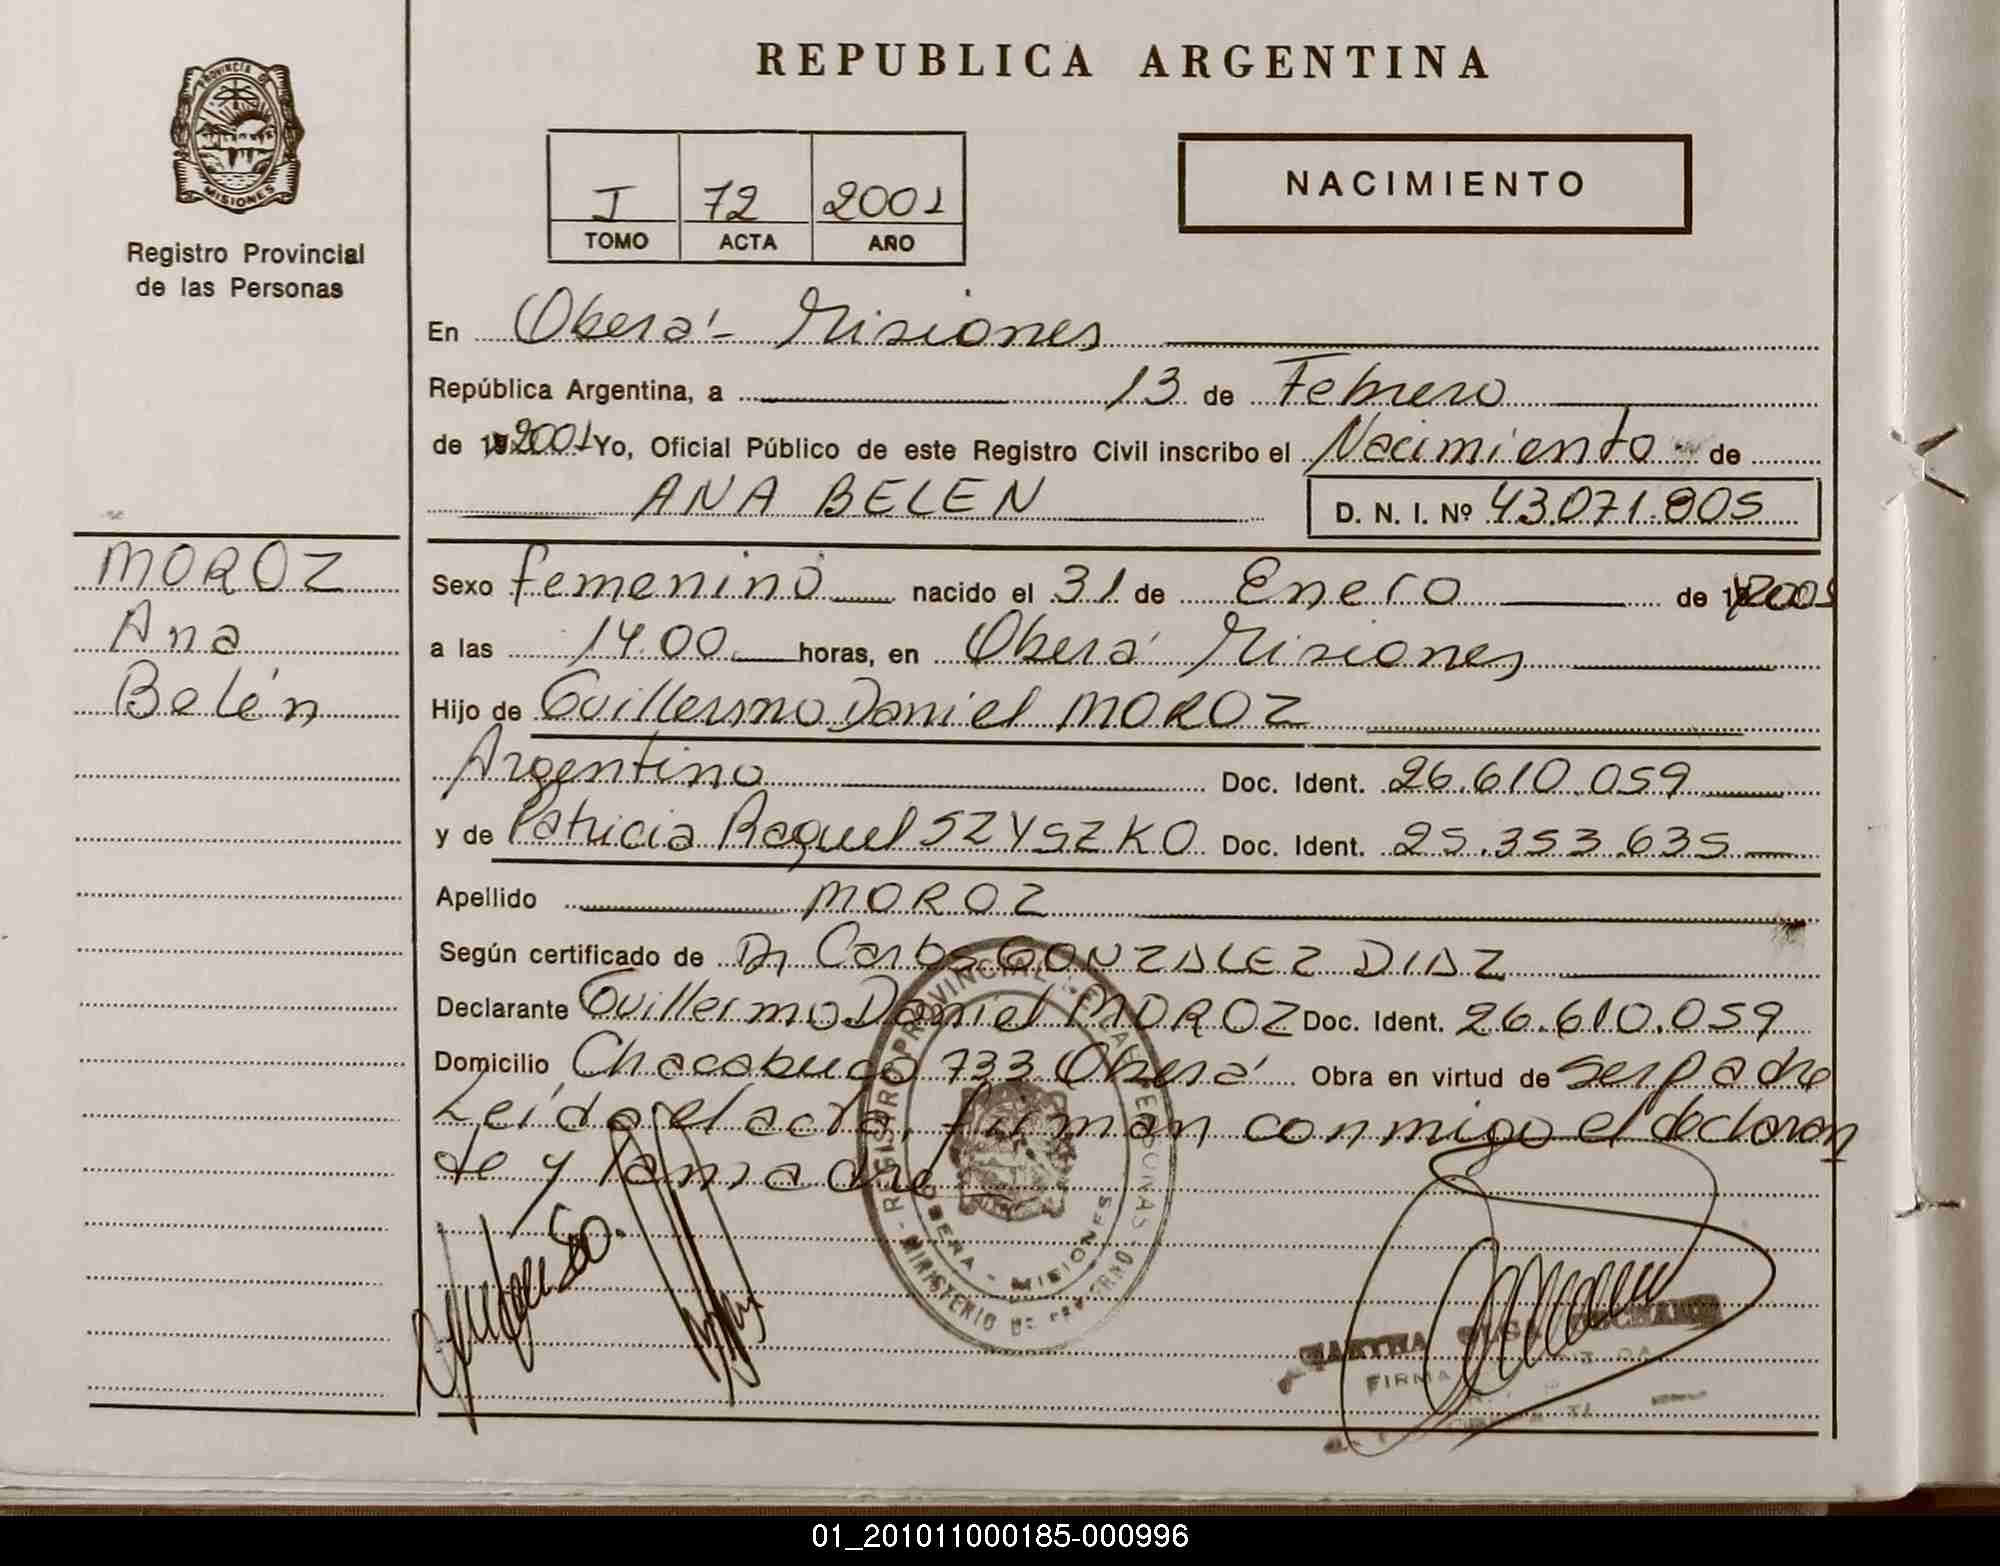 REPUBLICA ARGENTINA
PROVINCIA DE
MISIONES
Registro Provincial
de las Personas
I 72 2001
TOMO ACTA AÑO
NACIMIENTO
En Oberá - Misiones
República Argentina, a 13 de Febrero
de 19 2001 Yo, Oficial Público de este Registro Civil inscribo el Nacimiento de
ANA BELEN D. N. I. Nº 43.071.805
MOROZ
Ana
Belén
Sexo femenino nacido el 31 de Enero de 2001
a las 14.00 horas, en Oberá Misiones
Hijo de Guillermo Daniel MOROZ
Argentino Doc. Ident. 26.610.059
y de Patricia Raquel SZYSZKO Doc. Ident. 25.353.635
Apellido MOROZ
Según certificado de Dr Carlos GONZALEZ DIAZ
Declarante Guillermo Daniel MOROZ Doc. Ident. 26.610.059
Domicilio Chacabuco 733 Oberá Obra en virtud de ser padre
Leída el acta, firman conmigo el declaran
te y la madre
REGISTRO PROVINCIAL DE LAS PERSONAS
OBERA - MISIONES
MINISTERIO DE GOBIERNO
MARTHA OLGA
FIRMA
01_201011000185-000996